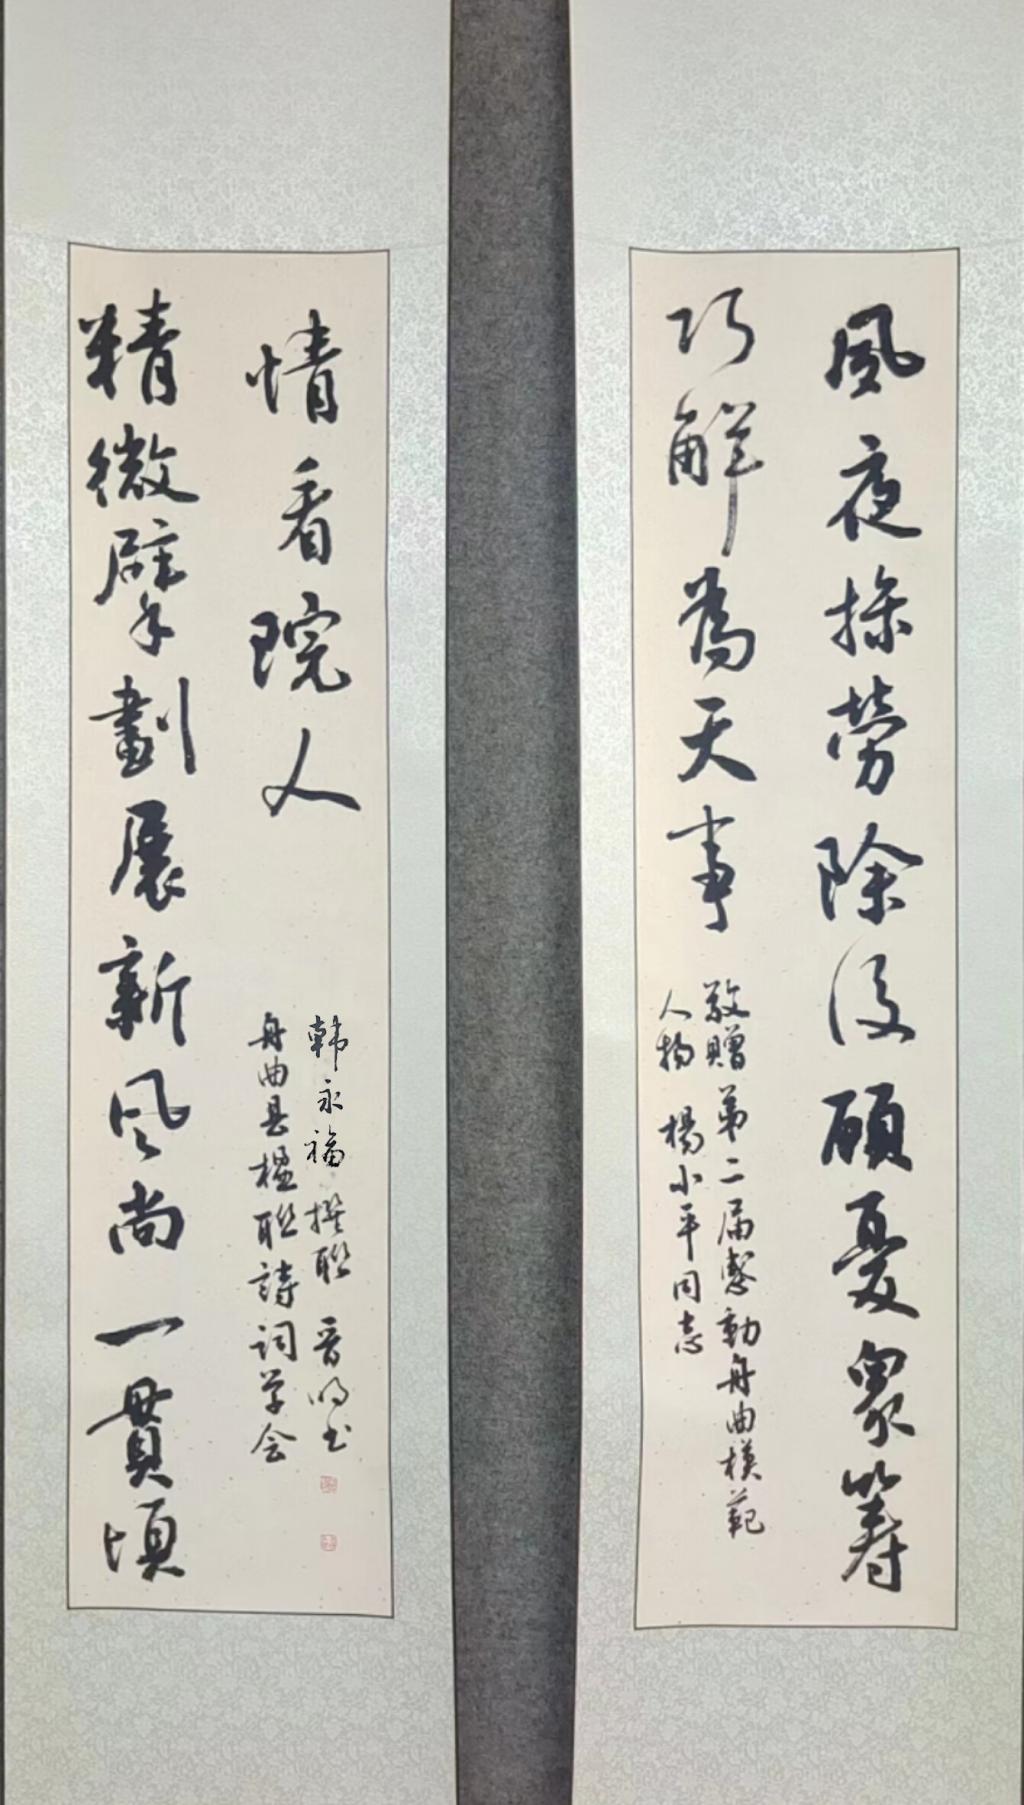 夙夜操勞除後顧憂衆筹
巧解為天事
敬贈第二届感動舟曲模範
人物 楊小平同志
精微擘劃展新风尚一貫頃
情看院人
舟曲县楹联詩词学会
韩永福 撰联 晋明书